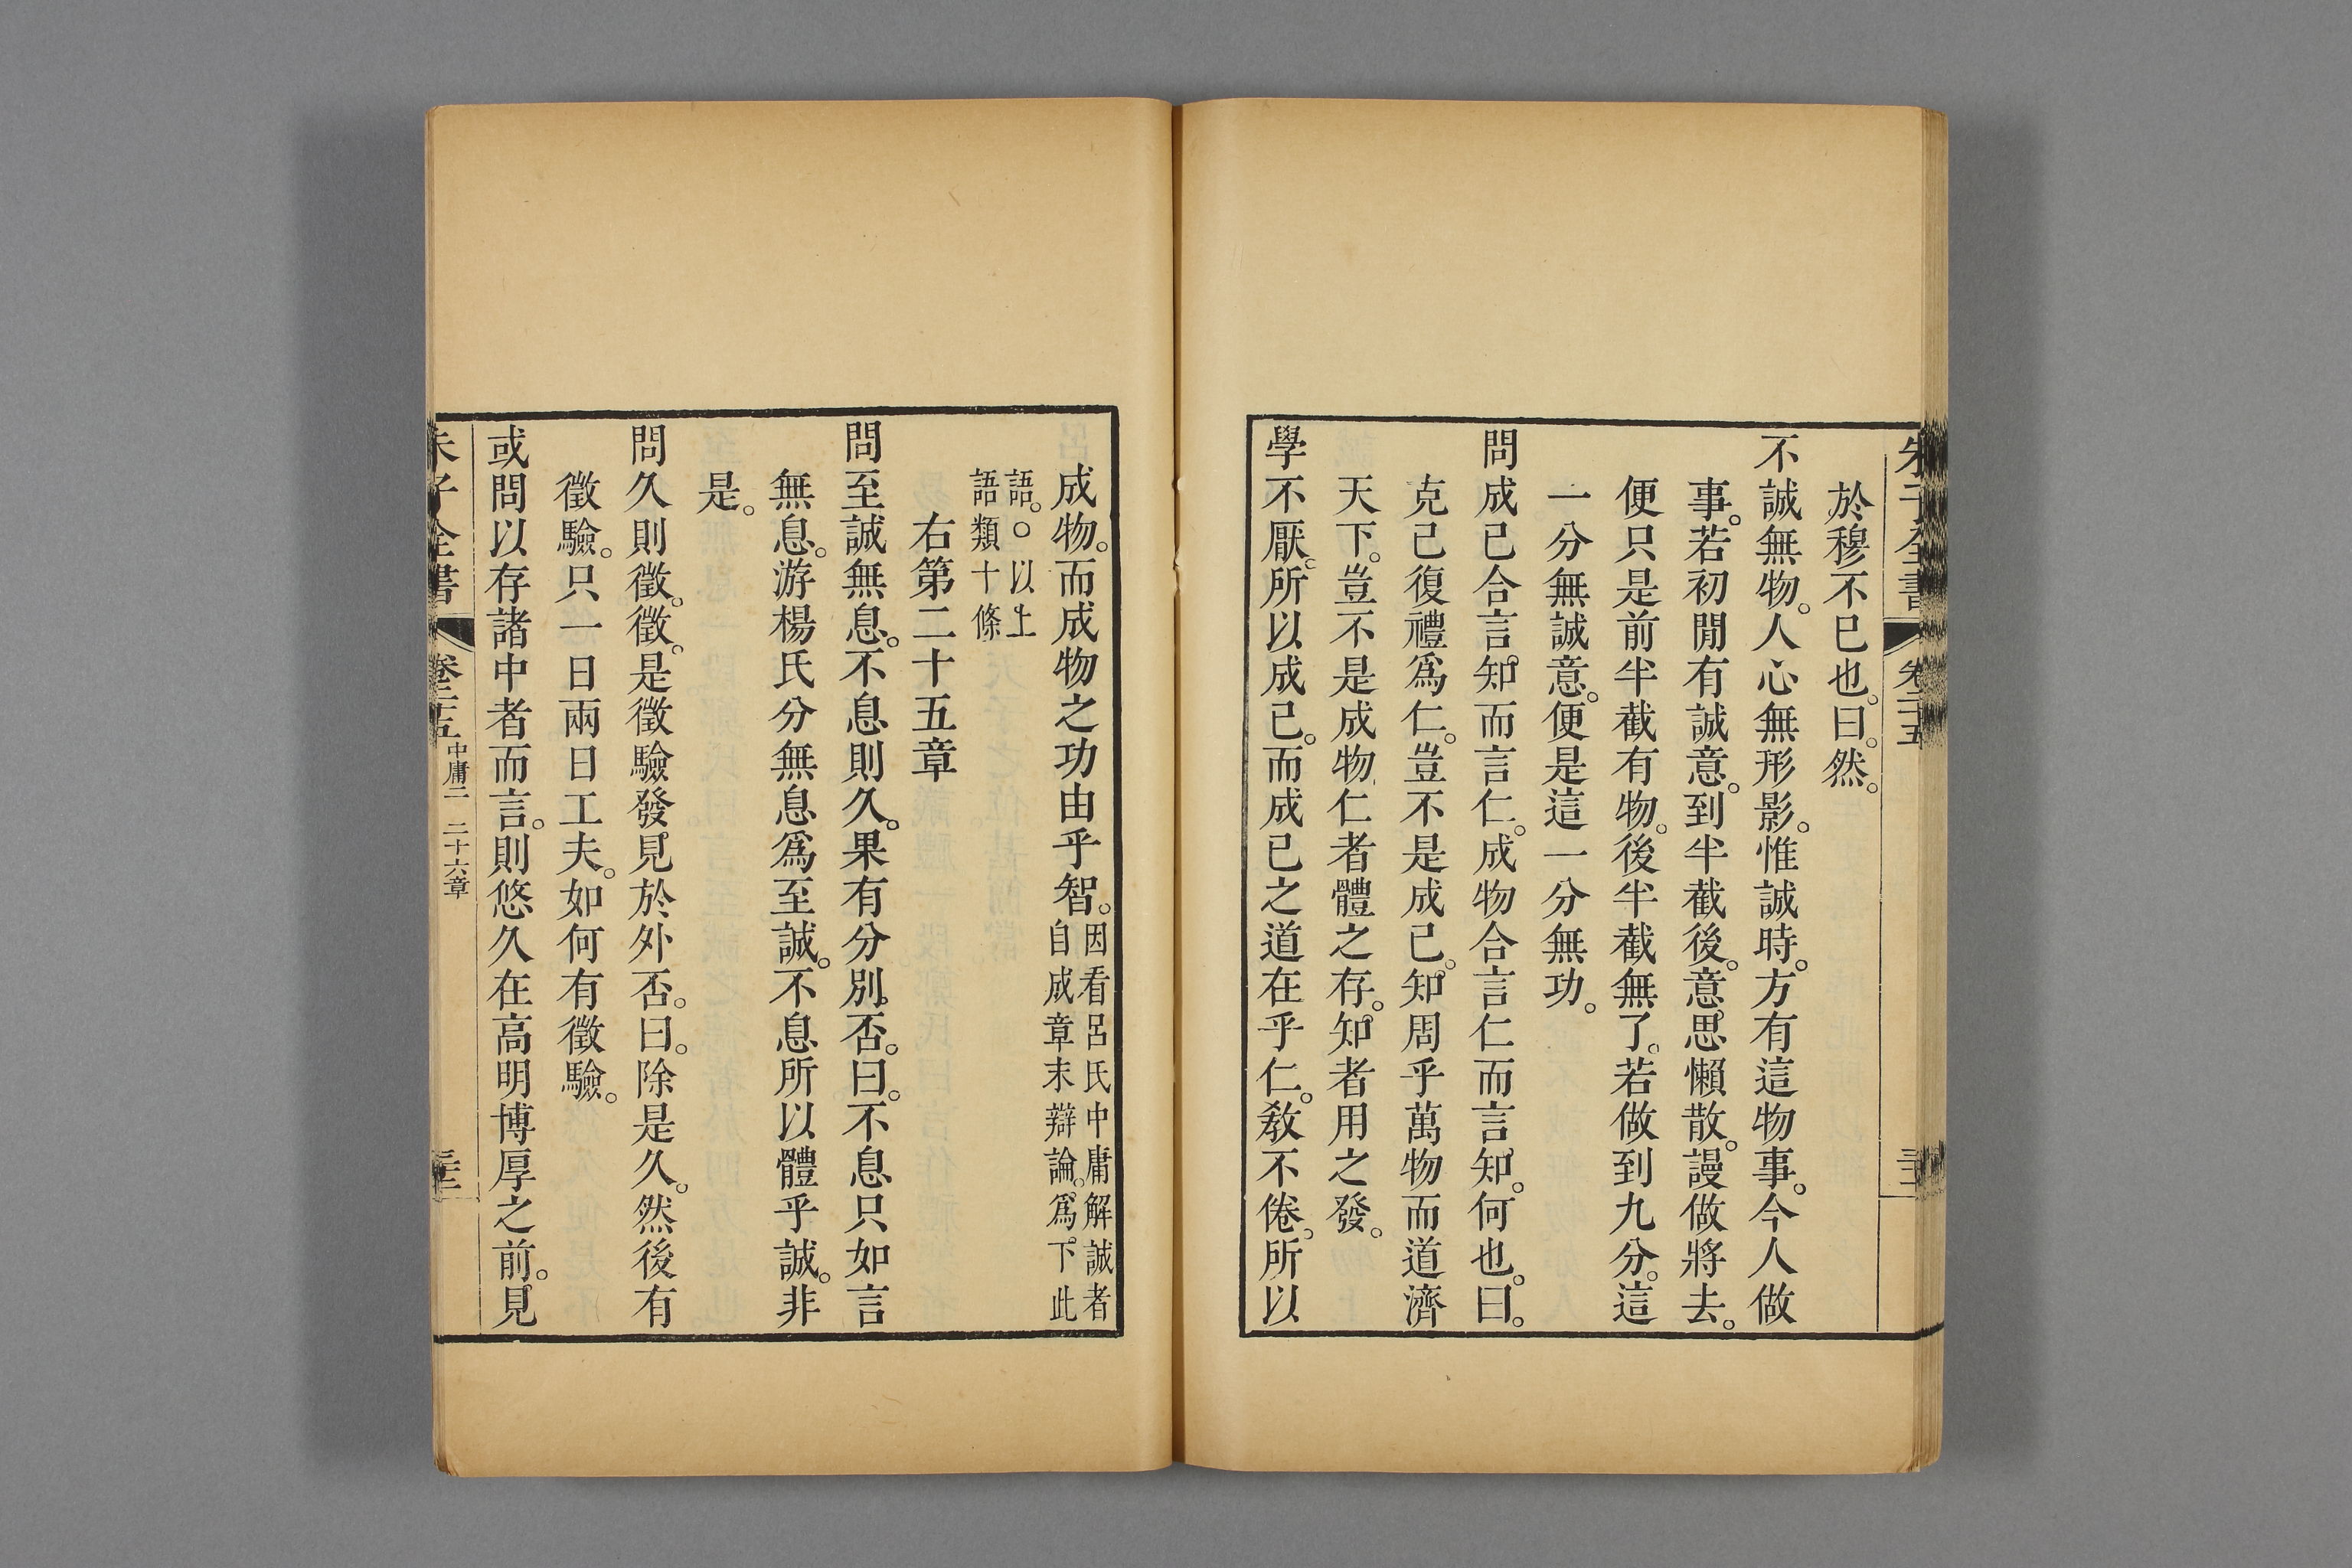 朱子全書 卷二十五
於穆不已也。曰。然。
不誠無物。人心無形影。惟誠時。方有這物事。今人做
事。若初閒有誠意。到半截後。意思懶散。謾做將去。
便只是前半截有物。後半截無了。若做到九分。這
一分無誠意。便是這一分無功。
問成已合言知而言仁。成物合言仁而言知。何也。曰。
克己復禮爲仁。豈不是成已。知周乎萬物而道濟
天下。豈不是成物。仁者體之存。知者用之發。
學不厭。所以成已。而成已之道在乎仁。敎不倦。所以
成物。而成物之功由乎智。因看呂氏中庸解誠者
自成章末辯論。爲下此
語。○以上
語類十條
右第二十五章
問至誠無息。不息則久。果有分別否。曰。不息只如言
無息。游楊氏分無息爲至誠。不息所以體乎誠。非
是。
問久則徵。徵。是徵驗發見於外否。曰。除是久。然後有
徵驗。只一日兩日工夫。如何有徵驗。
或問以存諸中者而言。則悠久在高明博厚之前。見
朱子全書 卷二十五 中庸二 二十六章